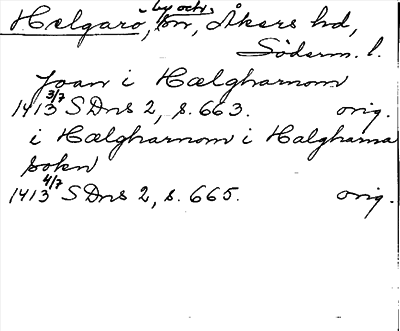 Helgarö, by och sn, Åkers hd,
Söderm. l.
Joan i Hælgharnom
1413 3/7 SDns 2, s. 663. orig.
i Hælgharnom i Halgharna
sokn
1413 4/7 SDns 2, s. 665. orig.